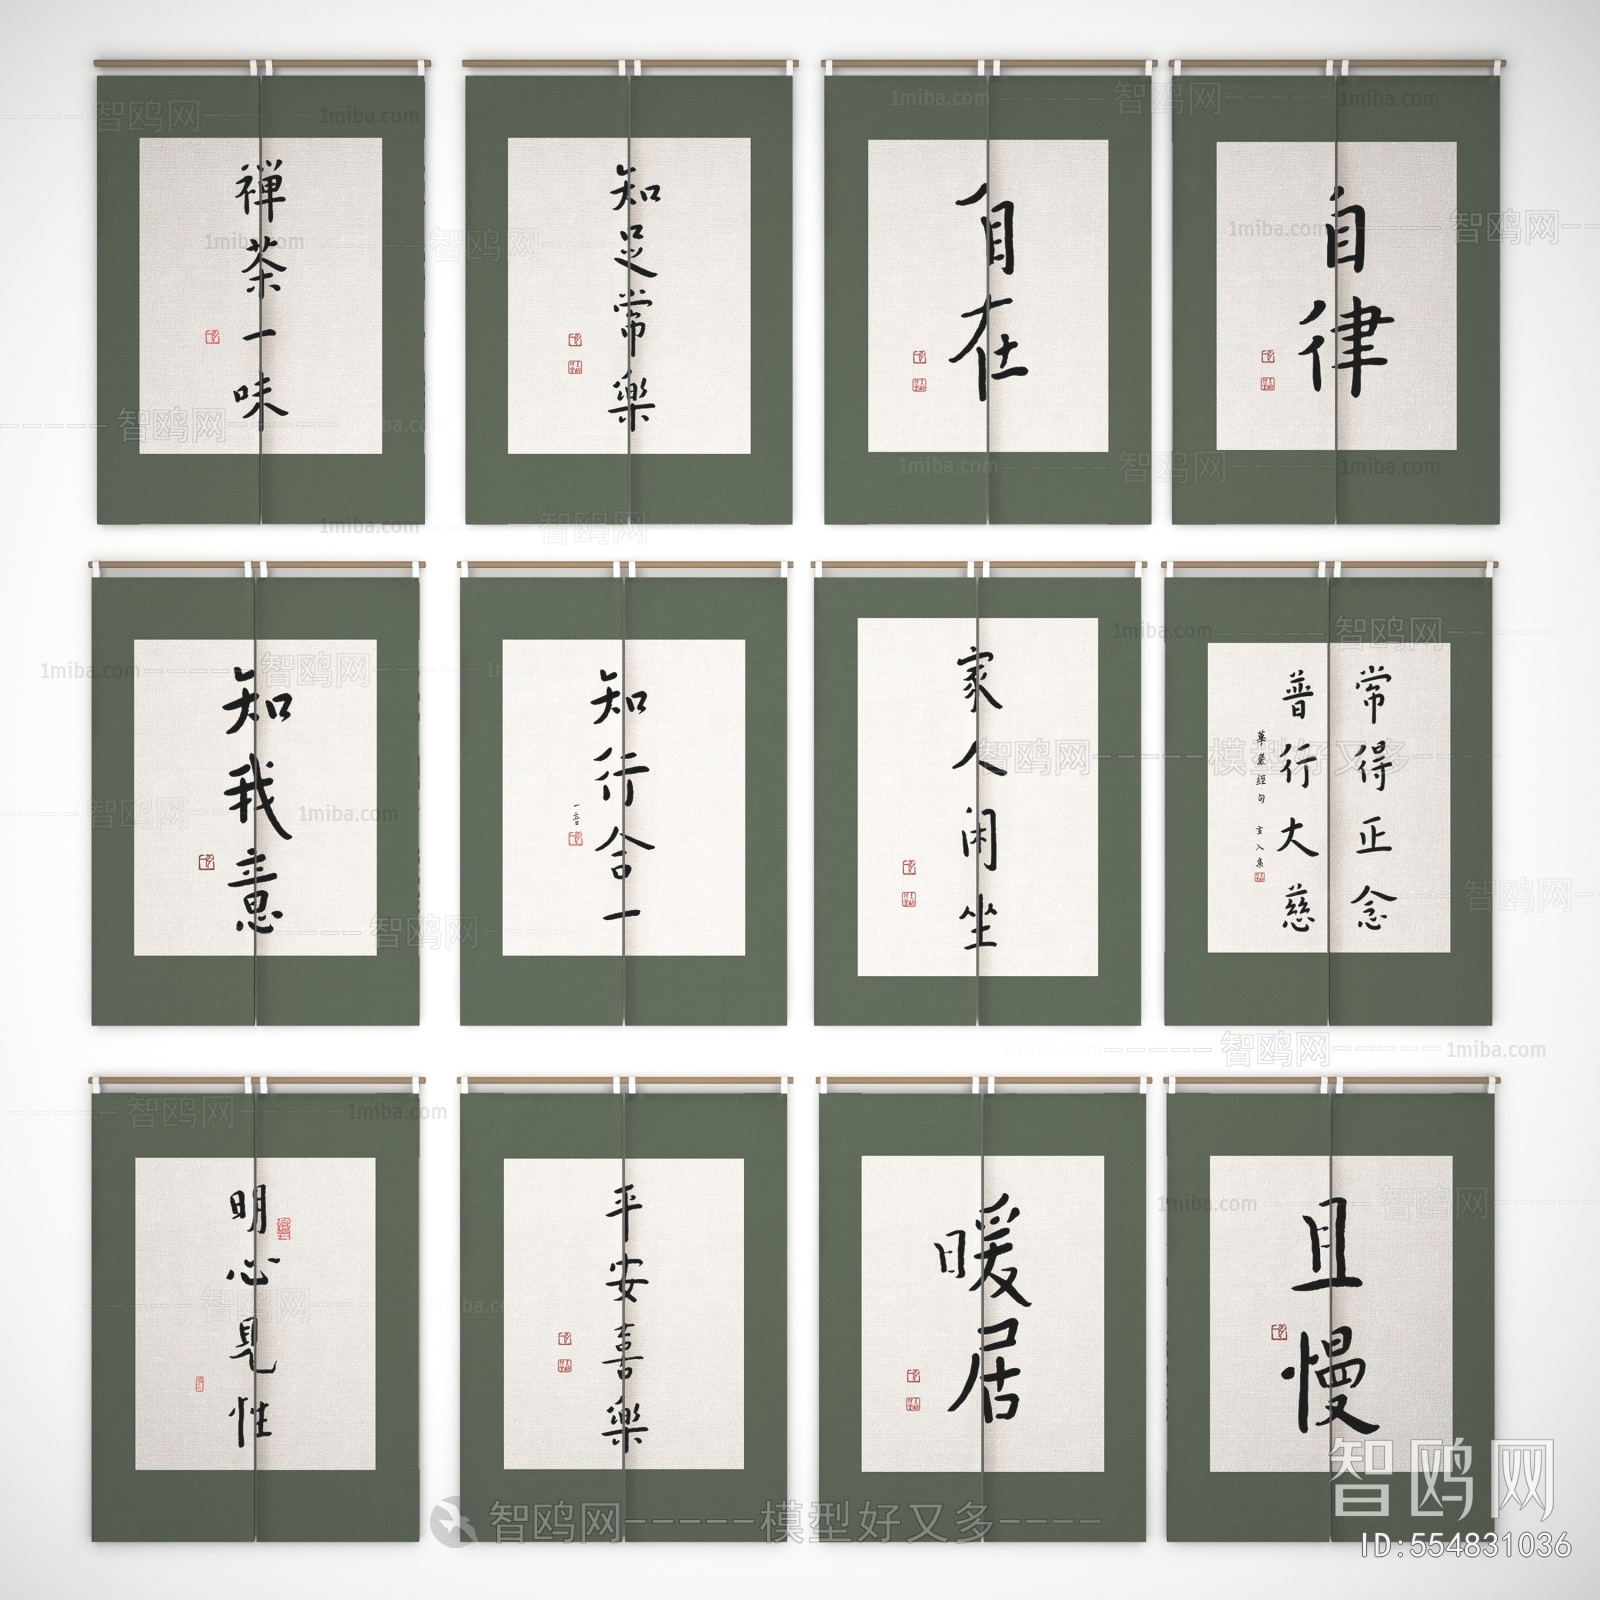 禅茶一味
知足常樂
自在
自律
知我意
知行合一
一音
家人闲坐
常得正念
普行大慈
華嚴經句
明心見性
平安喜樂
暖居
且慢
智鸥网
1miba.com
智鸥网-----模型好又多----
智鸥网
ID:554831036